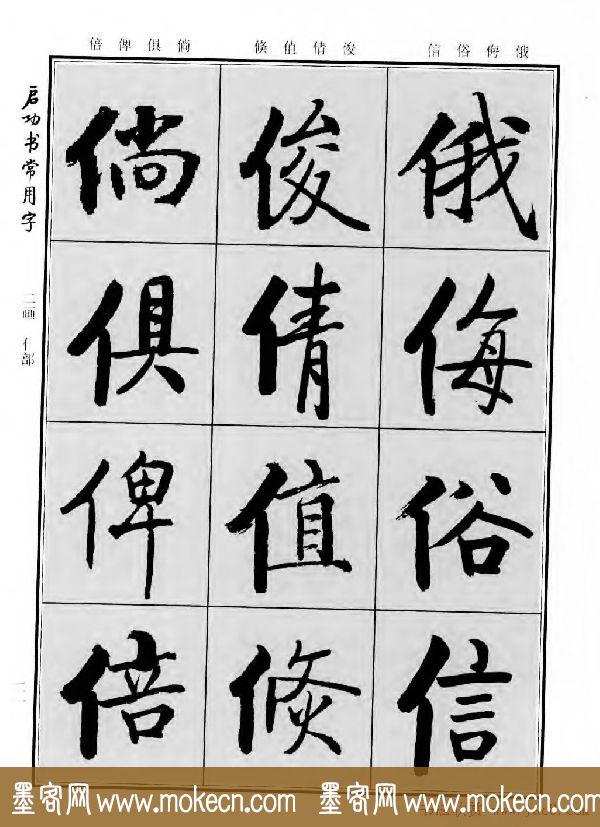 俄侮俗信
俊倩值倐
倘俱俾倍
俄侮俗信
俊倩值倐
倘俱俾倍
启功书常用字
二画 亻部
墨客网 www.mokecn.com 墨客网 www.mokecn.com